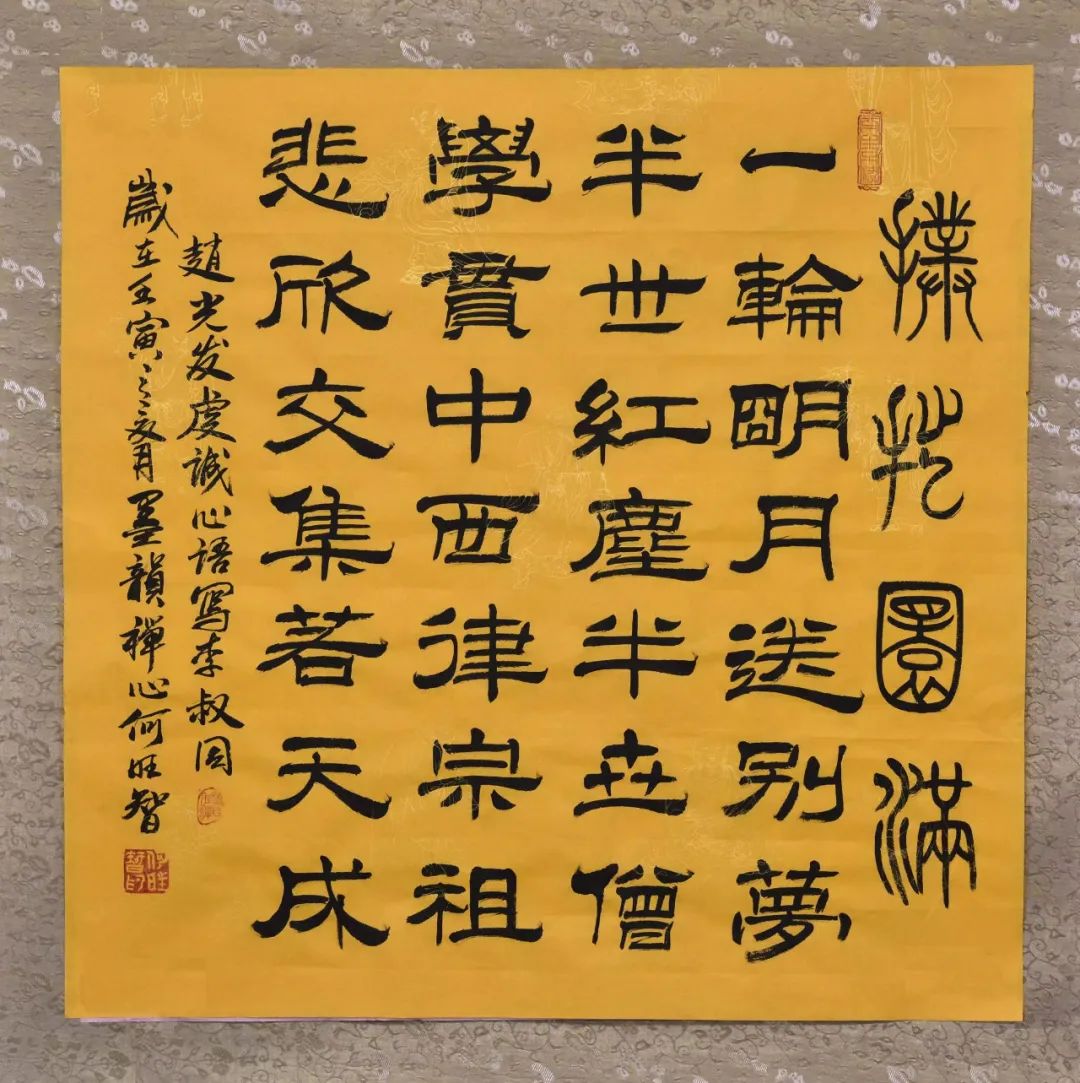 圜滿
一輪明月送别夢
半世紅塵半世僧
學貫中西律宗祖
悲欣交集若天成
趙光发虔誠心語寫李叔同
歲在壬寅之亥月墨韻禪心何旺智
何旺智印